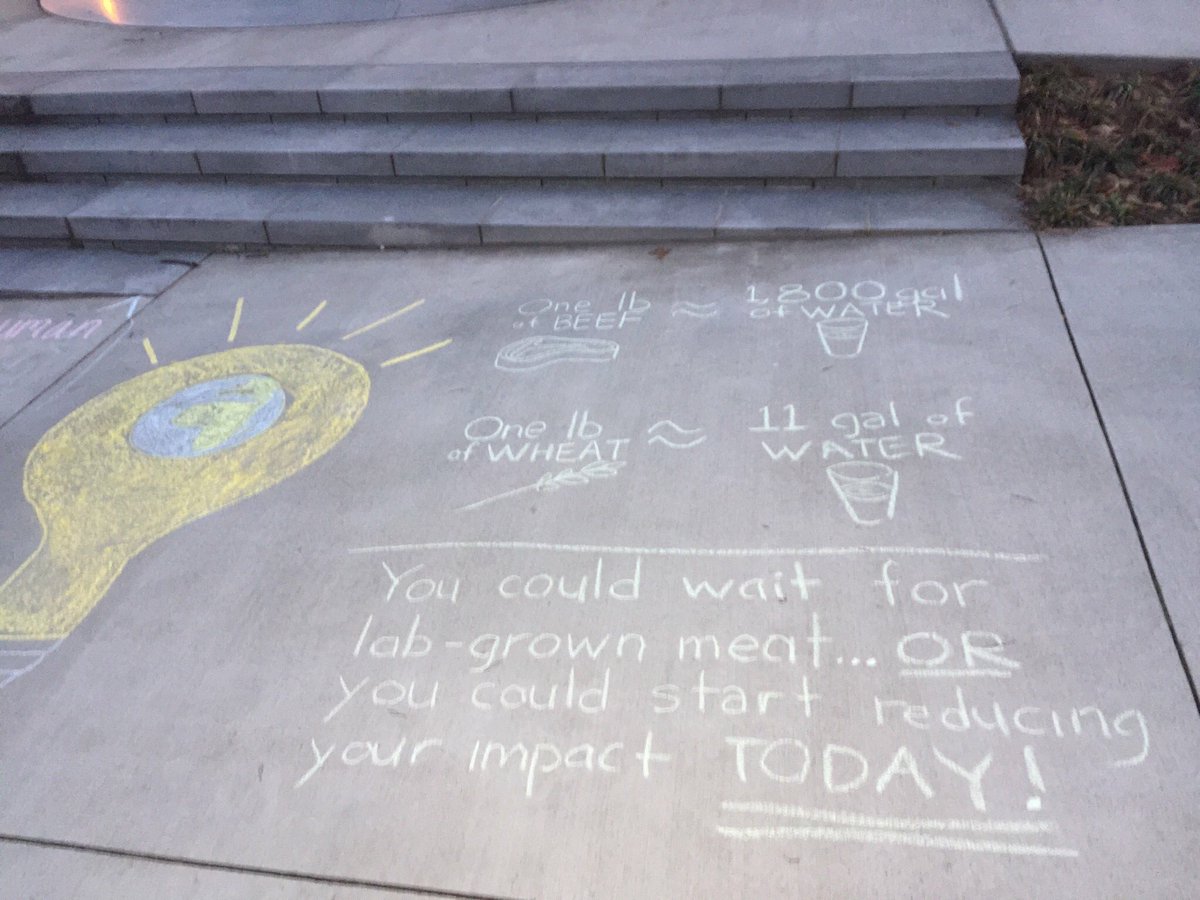 One lb
of BEEF
≈
1,800 gal
of WATER
One lb
of WHEAT
≈
11 gal of
WATER
You could wait for
lab-grown meat... OR
you could start reducing
your impact TODAY!